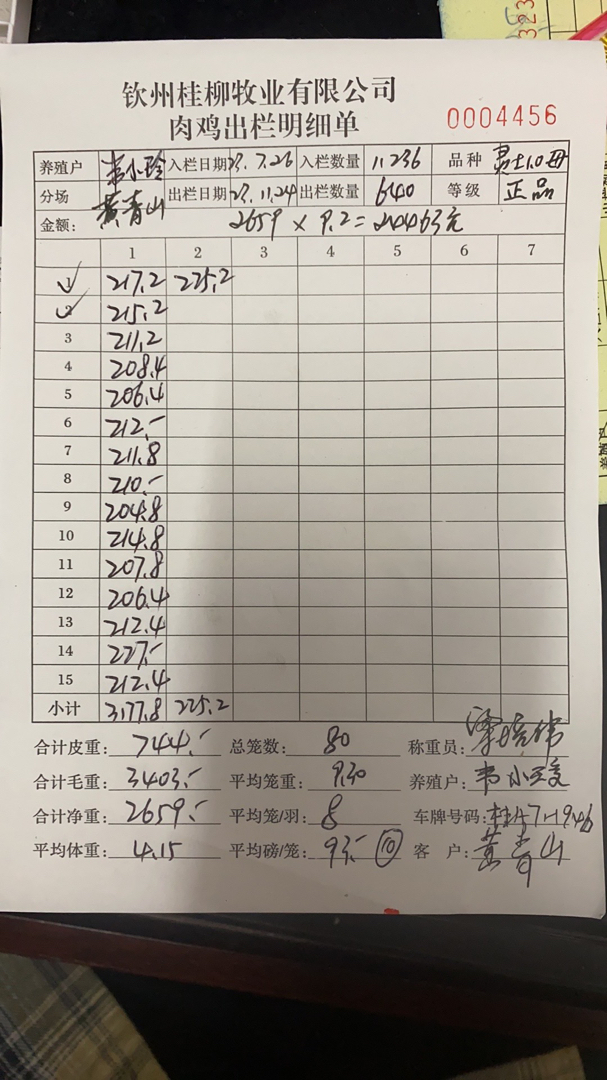 钦州桂柳牧业有限公司
肉鸡出栏明细单
0004456
养殖户 韦小玲 入栏日期 23.7.26 入栏数量 11236 品种
分场 黄青山 出栏日期 23.11.24 出栏数量 640 等级 正品
金额: 2659 × 9.2 = 24463元
1 2 3 4 5 6 7
1 217.2 225.2
2 215.2
3 211.2
4 208.4
5 206.4
6 212.-
7 211.8
8 210.-
9 204.8
10 214.8
11 207.8
12 206.4
13 212.4
14 227.-
15 212.4
小计 3177.8 225.2
合计皮重: 744.- 总笼数: 80 称重员:
合计毛重: 3403.- 平均笼重: 9.30 养殖户: 韦小玲
合计净重: 2659.- 平均笼/羽: 8 车牌号码:
平均体重: 4.15 平均磅/笼: 93.- ⑩ 客 户: 黄青山